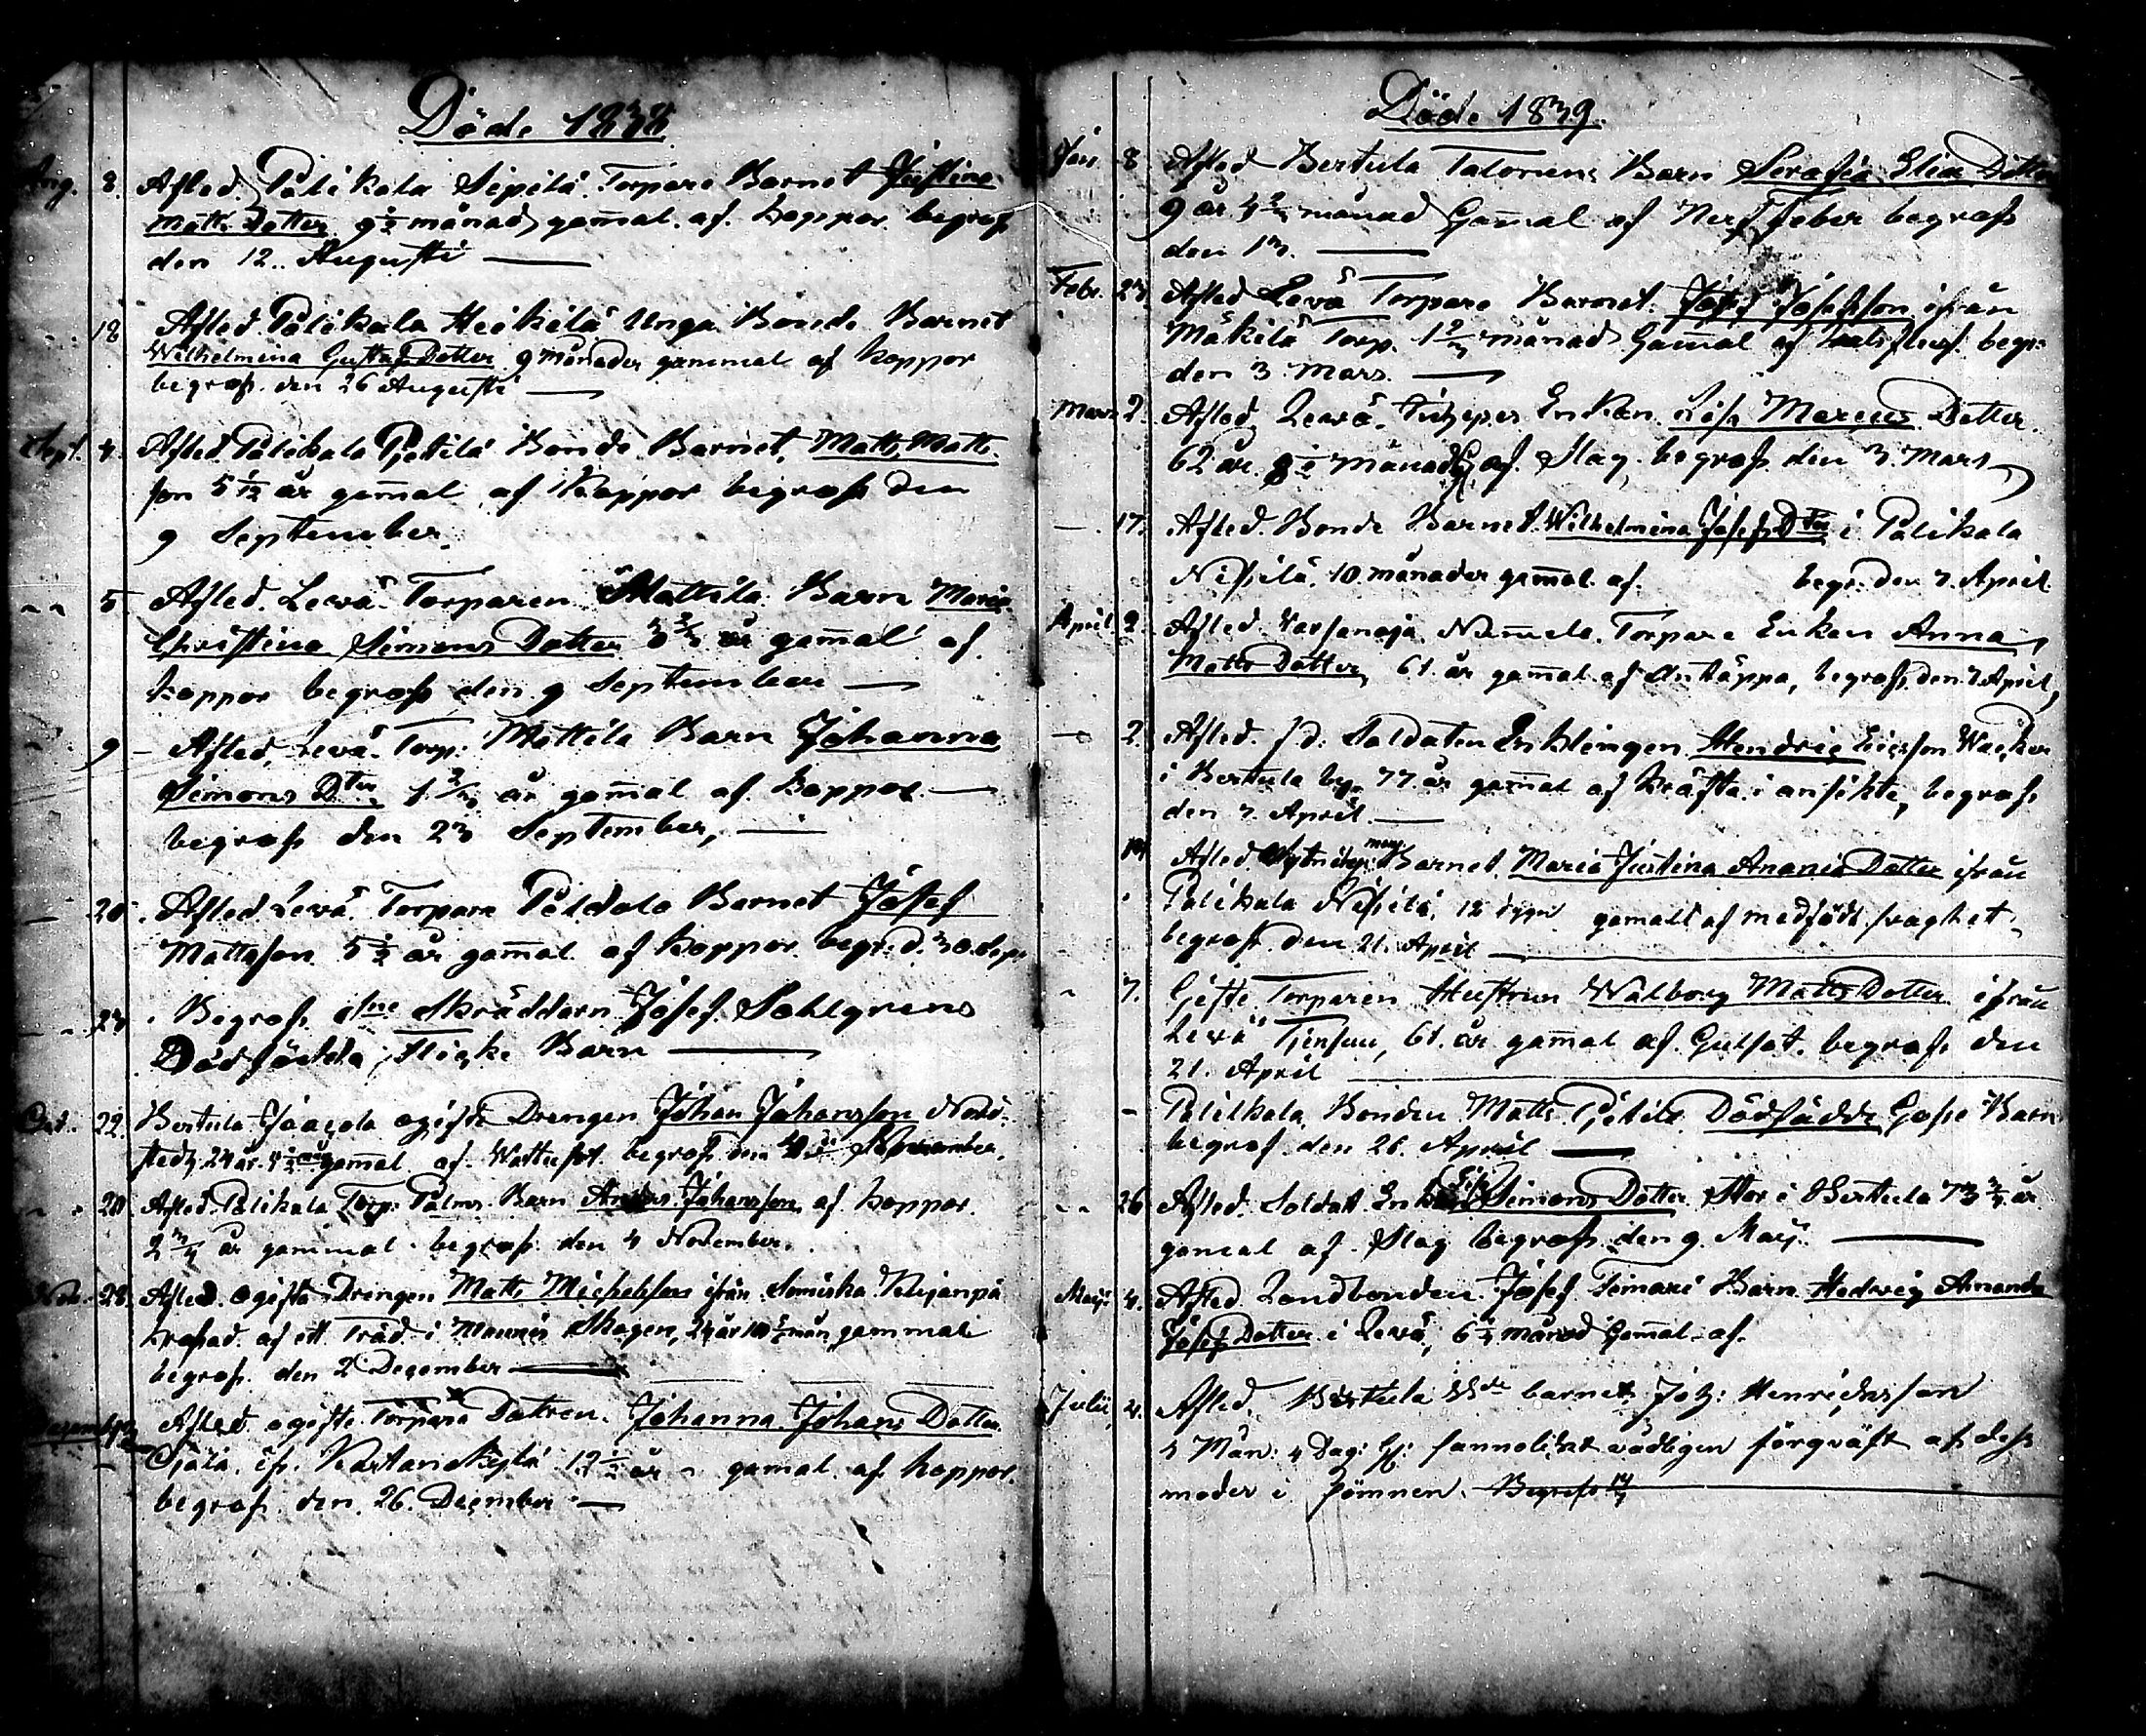 Döde 1838
Aug. 8. Afled. Palikala Sipilä Torpare Barnet Justina
Matts Dotter 9½ månad gam̄al af koppor begrofs
den 12. Augusti —
18 Afled. Palikala Heikilä Unga Bonde Barnet
Wilhelmina Gustafs Dotter 9 månader gammal af koppor
begrofs den 26 Augusti —
Sept. 4. Afled. Palikala Pjetilä Bonde Barnet, Matts Matts-
son 5 1/12 år gam̄al af Koppor begrofs den
9 September.
5 Afled. Levä Torparen Mattila Barn Maria
Christina Simons Dotter år gam̄al af
koppor begrofs den 9 September —
9 - Afled. Levä Torp: Mattila Barn Johanna
Simons Dter 1 år gam̄al af koppor —
begrofs den 23 September, —
20. Afled. Levä Torpare Paldala Barnet Josef
Mattsson 5½ år gam̄al af koppor begr: d. 30. Sept.
23 Begrofs Skräddarn Josef Sahlgrens
Dödfödda Flicke Barn —
Oct. 22. Bertula Jaacola ogifte Drengen Johan Johansson
24 år gam̄al af Wattusot begrofs den November.
28 Afled. Palikala Torp: Palmu Barn Johansson af koppor
2 ¾ år gammal begrofs den 4 November.
Nov. 28. Afled. ogifta Drengen Matts Michelsson ifrån
krossad af ett Träd i Skogen, 24 år 10½ mån gammal
begrofs den 2 December —
December Afled ogifte Torpare Dottren Johanna Johans Dotter
12½ år gamal af koppor
begrofs den 26. December —
Döde 1839.
Jan 8 Afled Bertula Talonens Barn Serafia Elias Dotter
9 år månad Gam̄al af Nerf feber begrofs
den 13. —
Febr. 23 Afled Levä Torpare Barnet Josef Josefsson ifrån
Mäkilä Torp. månad Gam̄al af begr:
den 3 Mars. —
Mars 2. Afled. Levä Enkan Lisa Marcus Dotter
62 år månad af Slag begrofs den 3. Mars
— 17. Afled. Bonde Barnet Wilhelmina Josefs Dter i Palikala
Nissilä 10 månader gam̄al af begr: den 7. April
April 2. Afled. Varsanoja Torpare Enkan Anna
Matts Dotter, 61 år gam̄al af Andtäppa, begrofs den 7 April,
— 2. Afled. f.d. Soldaten Enklingen Hendric Ericsson Wacker
i Bertula by 77 år gam̄al af kräfta i ansikte, begrofs
den 7. April —
Afled Barnet Maria Justina Ananias Dotter ifrån
Palikala Nissilä, 12 dygn gamalt af medfödd svaghet
begrofs den 21. April —
7. Gifte Torparen Hustrun Walborg Matts Dotter ifrån
Levä 61 år gam̄al af Gulsot. begrofs den
21. April
- Palikala Bonden Matts Pjetilä Dödfödde Gosse Barn
begrofs den 26. April —
26 Afled. Soldatt Enkan Simons Dotter Stor i Bertula 73 ¾ år
gamal af Slag begrofs den 9. Maij. —
Maij 4. Afled Landbonden Josef Barn Hedvig Amanda
Josefs Dotter i Levä, månad Gam̄al af
Julii 4. Afled. Bertula barnet Joh: Henricksson
5 Mån: 4 Dag: Gl: sannolikt vådligen förqväft af dess
moder i sömnen. Begrofs 14/7